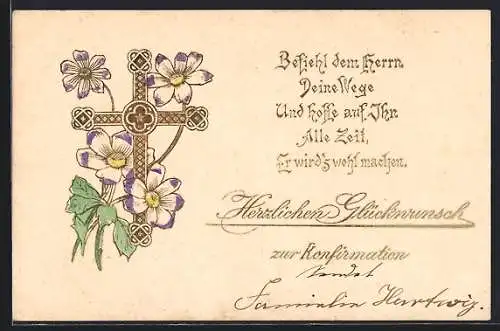 Befiehl dem Herrn
Deine Wege
Und hoffe auf Ihn
Alle Zeit,
Er wird's wohl machen.
Herzlichen Glückwunsch
zur Konfirmation
sendet
Familie Hartwig.